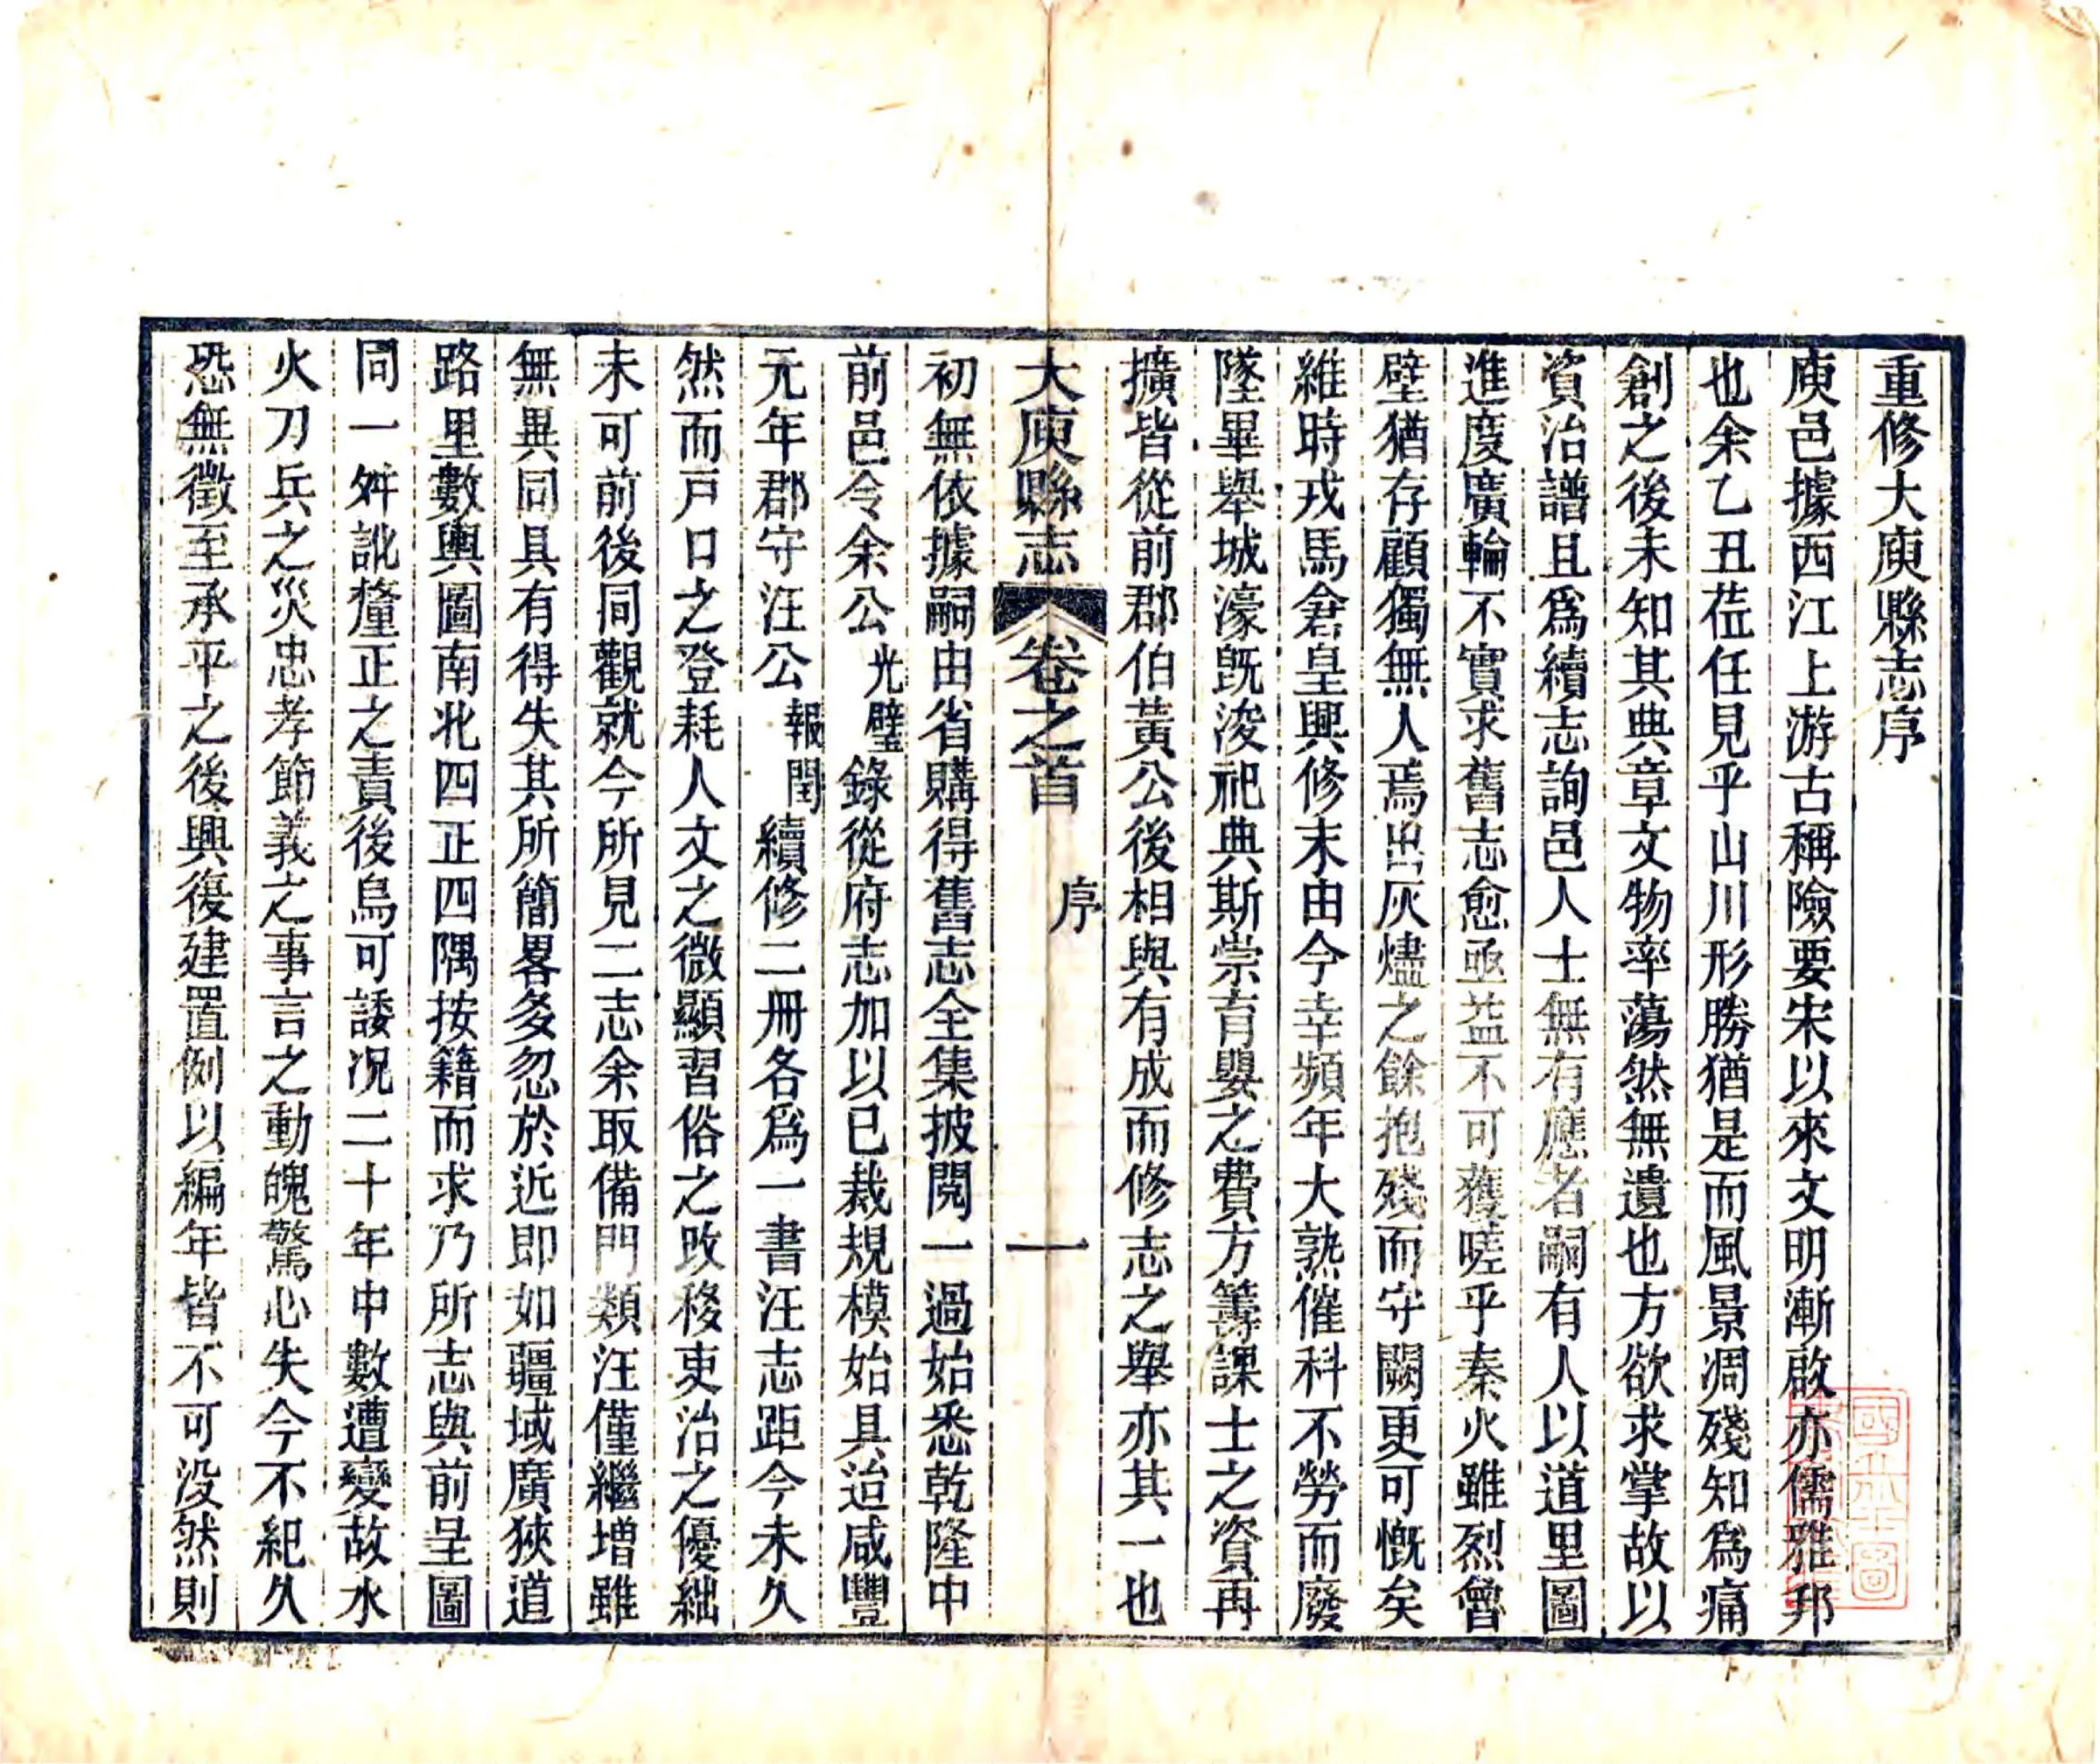 重修大庾縣志序
庾邑據西江上游古稱險要宋以來文明漸啟亦儒雅邦
也余乙丑莅任見乎山川形勝猶是而風景凋殘知爲痛
創之後未知其典章文物率蕩然無遺也方欲求掌故以
資治譜且爲續志詢邑人士無有應者嗣有人以道里圖
進度廣輪不實求舊志愈亟益不可獲嗟乎秦火雖烈曾
壁猶存顧獨無人焉出灰燼之餘抱殘而守闕更可慨矣
維時戎馬倉皇興修末由今幸頻年大熟催科不勞而廢
墜畢舉城濠既浚祀典斯崇育嬰之費方籌課士之資再
擴皆從前郡伯黃公後相與有成而修志之舉亦其一也
大庾縣志 卷之首 序 一
初無依據嗣由省購得舊志全集披閱一過始悉乾隆中
前邑令余公光璧錄從府志加以已裁規模始具迨咸豐
元年郡守汪公報閏續修二冊各爲一書汪志距今未久
然而戸口之登耗人文之微顯習俗之改移吏治之優絀
未可前後同觀就今所見二志余取備門類汪僅繼增雖
無異同具有得失其所簡畧多忽於近即如疆域廣狹道
路里數輿圖南北四正四隅按籍而求乃所志與前呈圖
同一舛訛釐正之責後烏可諉况二十年中數遭變故水
火刀兵之災忠孝節義之事言之動魄驚心失今不紀久
恐無徵至承平之後興復建置例以編年皆不可没然則